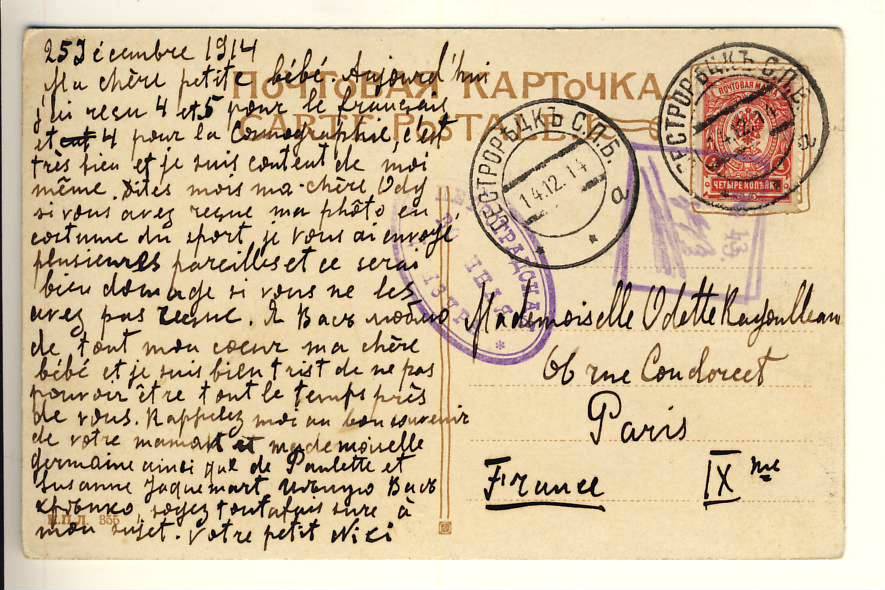 25 Décembre 1914
Ma chère petite bébé. Aujourd'hui
j'ai reçu 4 et 5 pour le français
et 4 pour la Cosmographie, c'est
très bien et je suis content de moi
même. Dites mois ma chère Ody
si vous avez reçue ma phôto en
costume du sport, je vous ai envoyé
plusieures pareilles et ce serai
bien domage si vous ne les
avez pas reçue. Я Васъ люблю
de tout mon coeur ma chère
bébé et je suis bien trist de ne pas
pouvoir être tout le temps près
de vous. Rappelez moi au bon souvenir
de votre maman et mademoiselle
germaine ainsi que de Paulette et
Susanne Jaquemart цѣлую Васъ
крѣпко, soyez toutafais sure à
mon sujet. Votre petit Niki
ПОЧТОВАЯ КАРТОЧКА
CARTE POSTALE
СЕСТРОРѢЦКЪ С.П.Б.
14.12.14
а
СЕСТРОРѢЦКЪ С.П.Б.
14.12.14
а
ПОЧТОВАЯ МАРКА
ЧЕТЫРЕ КОПѢЙКИ
Mademoiselle Odette
66 rue Condorcet
Paris
France
IX me
355